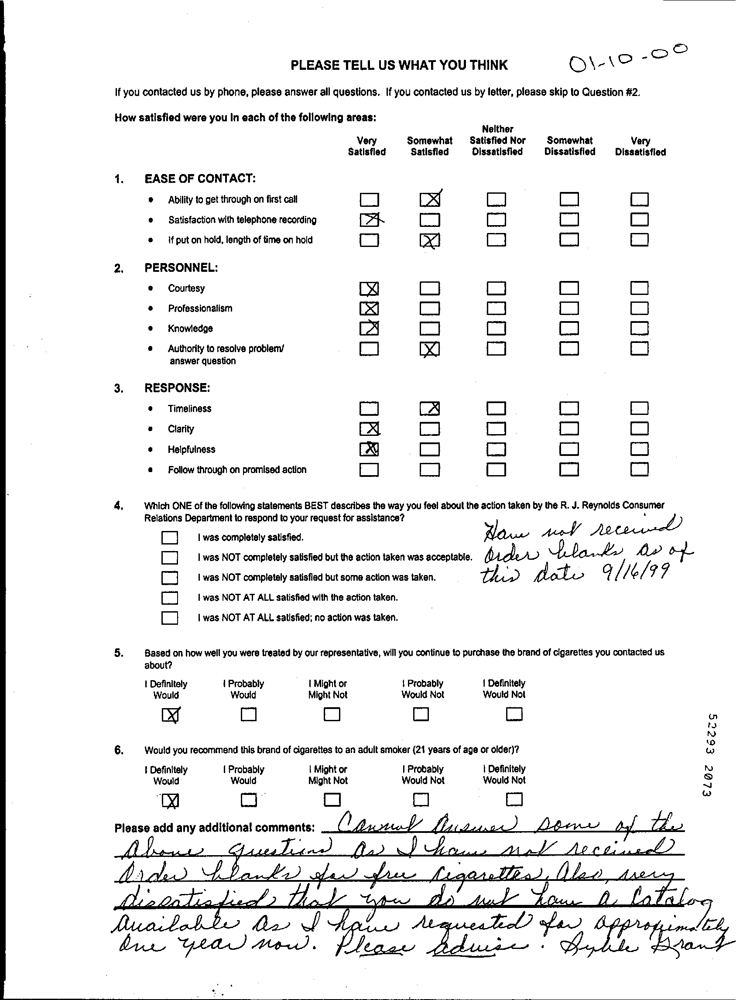 PLEASE TELL US WHAT YOU THINK
01-10-00
If you contacted us by phone, please answer all questions. If you contacted us by letter, please skip to Question #2.
How satisfied were you in each of the following areas:
Very Satisfied
Somewhat Satisfied
Neither Satisfied Nor Dissatisfied
Somewhat Dissatisfied
Very Dissatisfied
1. EASE OF CONTACT:
• Ability to get through on first call
• Satisfaction with telephone recording
• If put on hold, length of time on hold
2. PERSONNEL:
• Courtesy
• Professionalism
• Knowledge
• Authority to resolve problem/
answer question
3. RESPONSE:
• Timeliness
• Clarity
• Helpfulness
• Follow through on promised action
4. Which ONE of the following statements BEST describes the way you feel about the action taken by the R. J. Reynolds Consumer
Relations Department to respond to your request for assistance?
I was completely satisfied.
I was NOT completely satisfied but the action taken was acceptable.
I was NOT completely satisfied but some action was taken.
I was NOT AT ALL satisfied with the action taken.
I was NOT AT ALL satisfied; no action was taken.
Have not received
Order blanks as of
this date 9/16/99
5. Based on how well you were treated by our representative, will you continue to purchase the brand of cigarettes you contacted us
about?
I Definitely Would
I Probably Would
I Might or Might Not
I Probably Would Not
I Definitely Would Not
6. Would you recommend this brand of cigarettes to an adult smoker (21 years of age or older)?
I Definitely Would
I Probably Would
I Might or Might Not
I Probably Would Not
I Definitely Would Not
Please add any additional comments: Cannot Answer some of the
Above questions as I have not received
Order blanks for free cigarettes, Also, very
dissatisfied that you do not have a Catalog
available as I have requested for approximately
One year now. Please advise. Grant
52293 2073